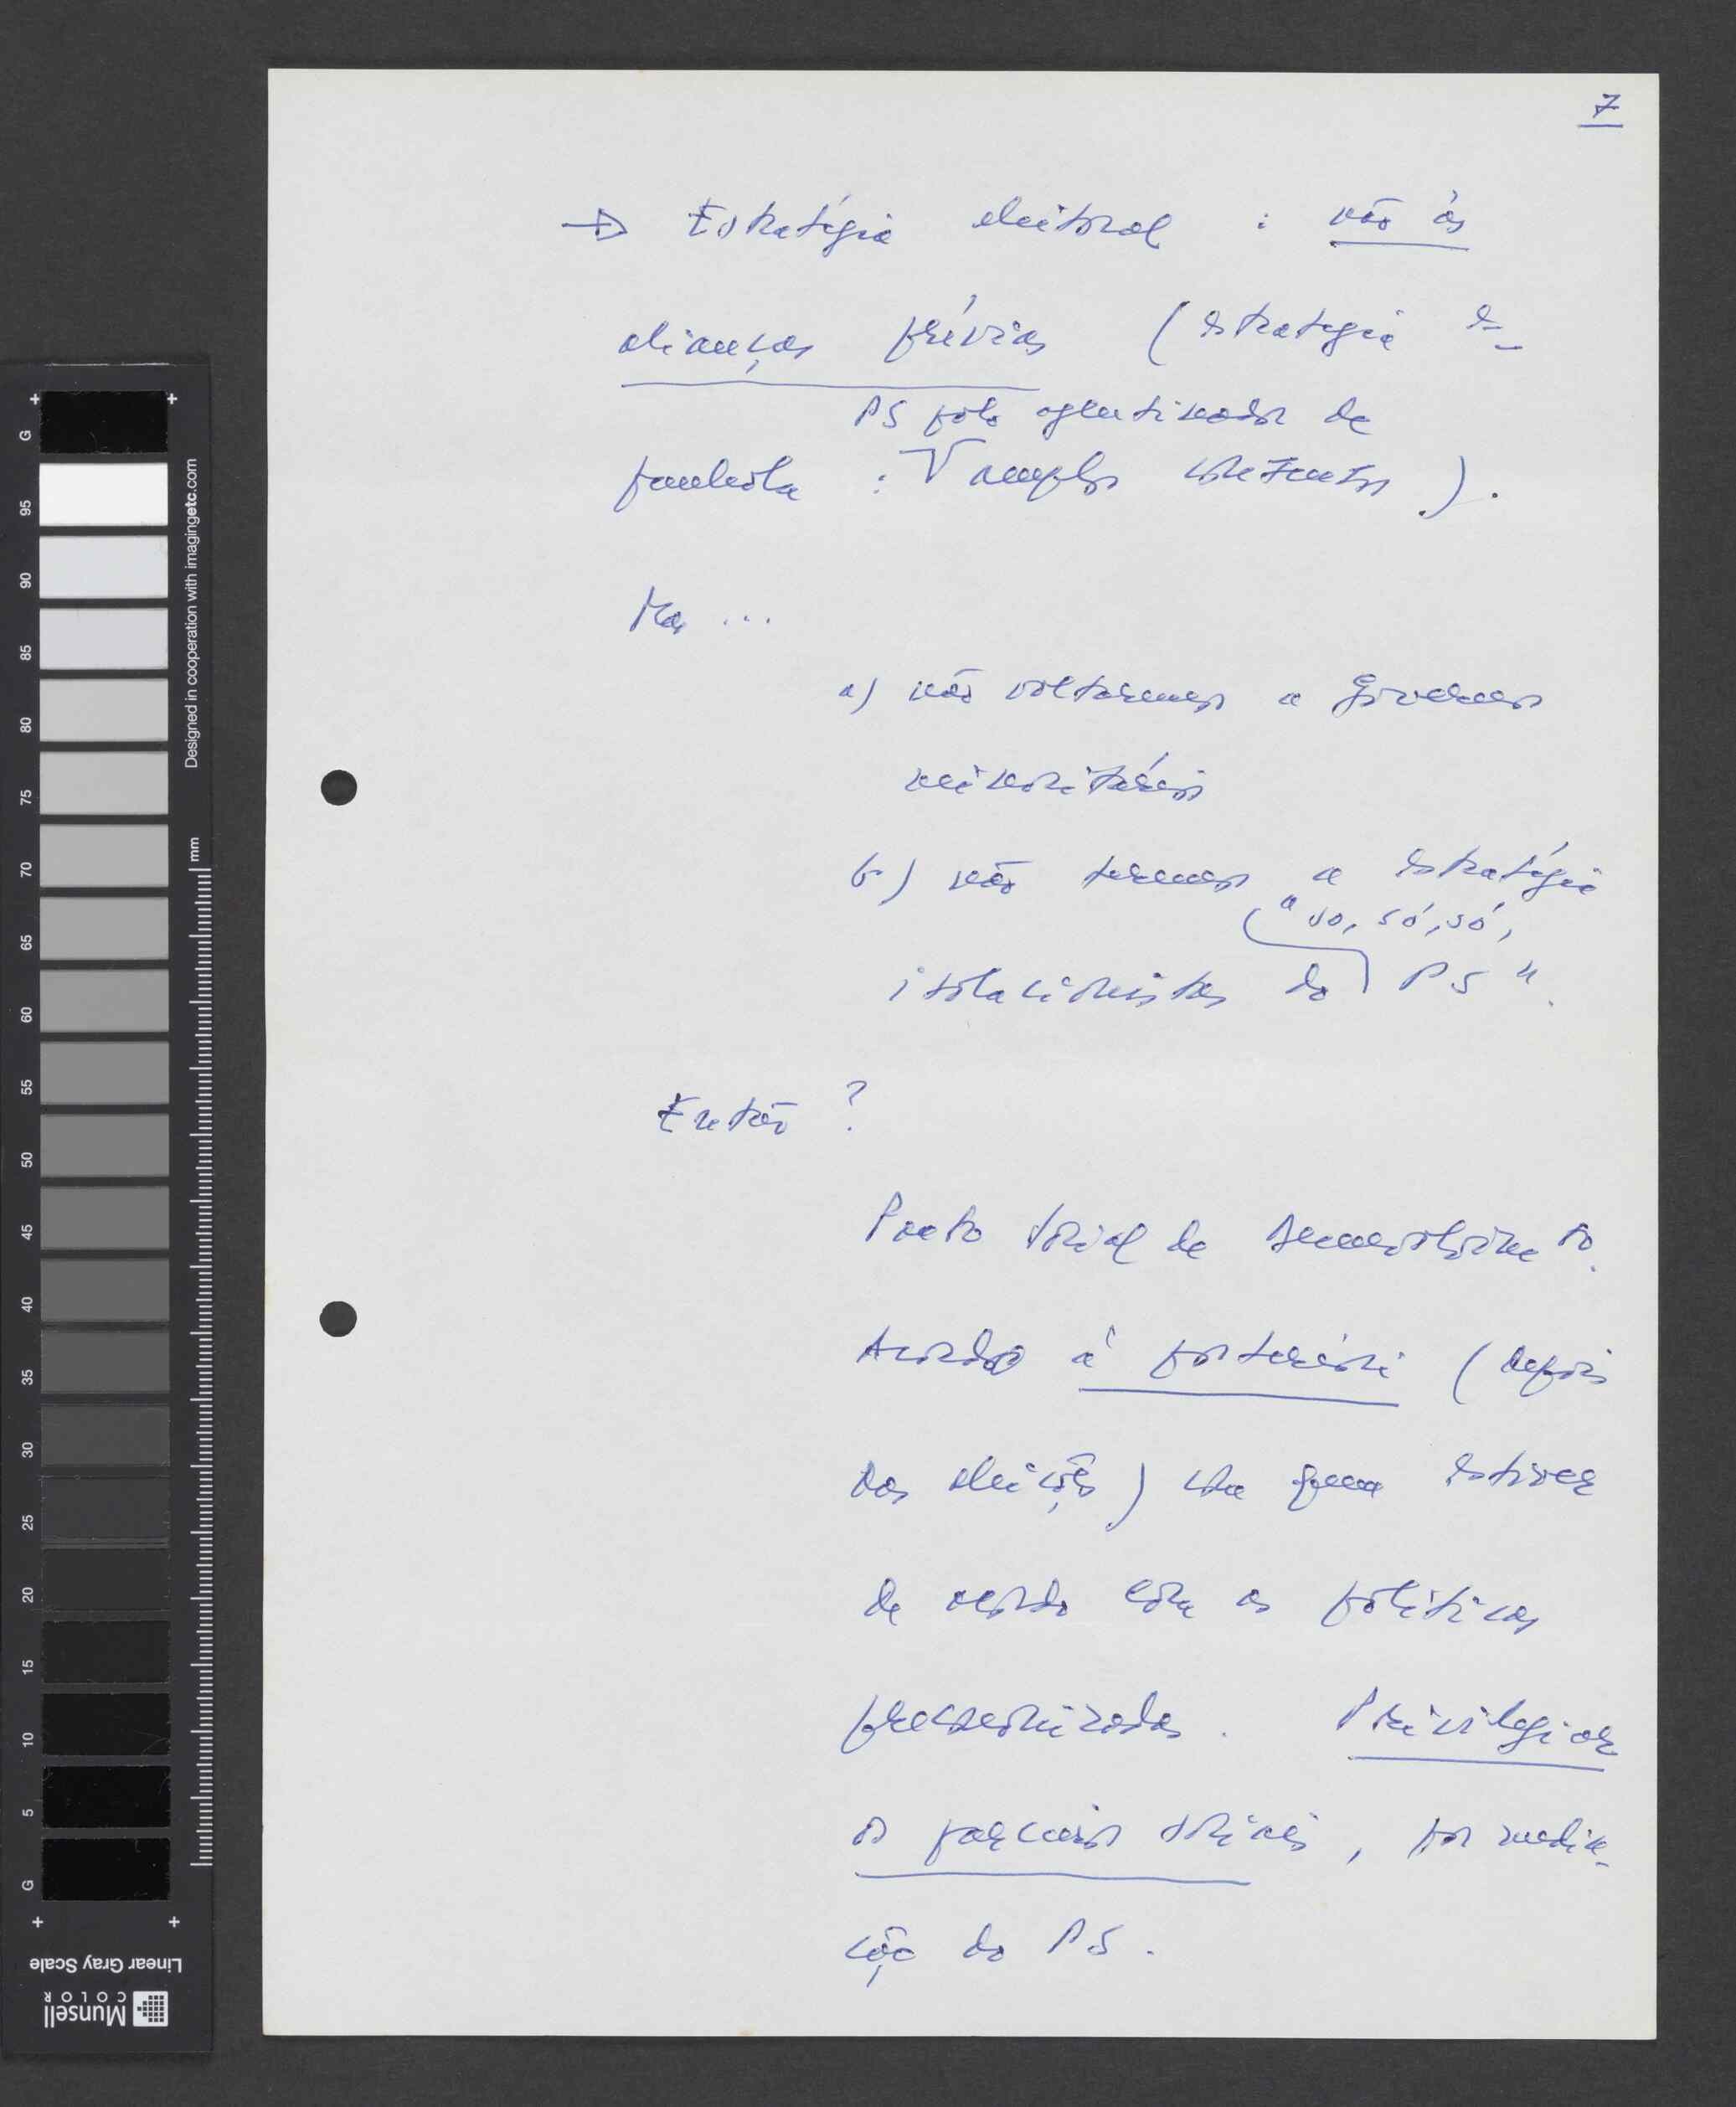 7
→ Estratégia eleitoral : não às
alianças prévias (estratégia es-
PS pólo aglutinador de
panhola : V amplos consensos).
Mas ...
a) não voltaremos a Governos
minoritários
b) não teremos a estratégia
"só, só, só,
isolacionistas do PS".
Então ?
Pacto Social de Desenvolvimento.
Acordos à posteriori (depois
das eleições) com quem estiver
de acordo com as políticas
preconizadas. Privilegiar
os parceiros sociais, por media-
ção do PS.
G
95
90
85
80
75
70
65
60
55
50
45
40
35
30
25
20
15
10
5
G
Designed in cooperation with imagingetc.com
mm
Linear Gray Scale
Munsell
COLOR